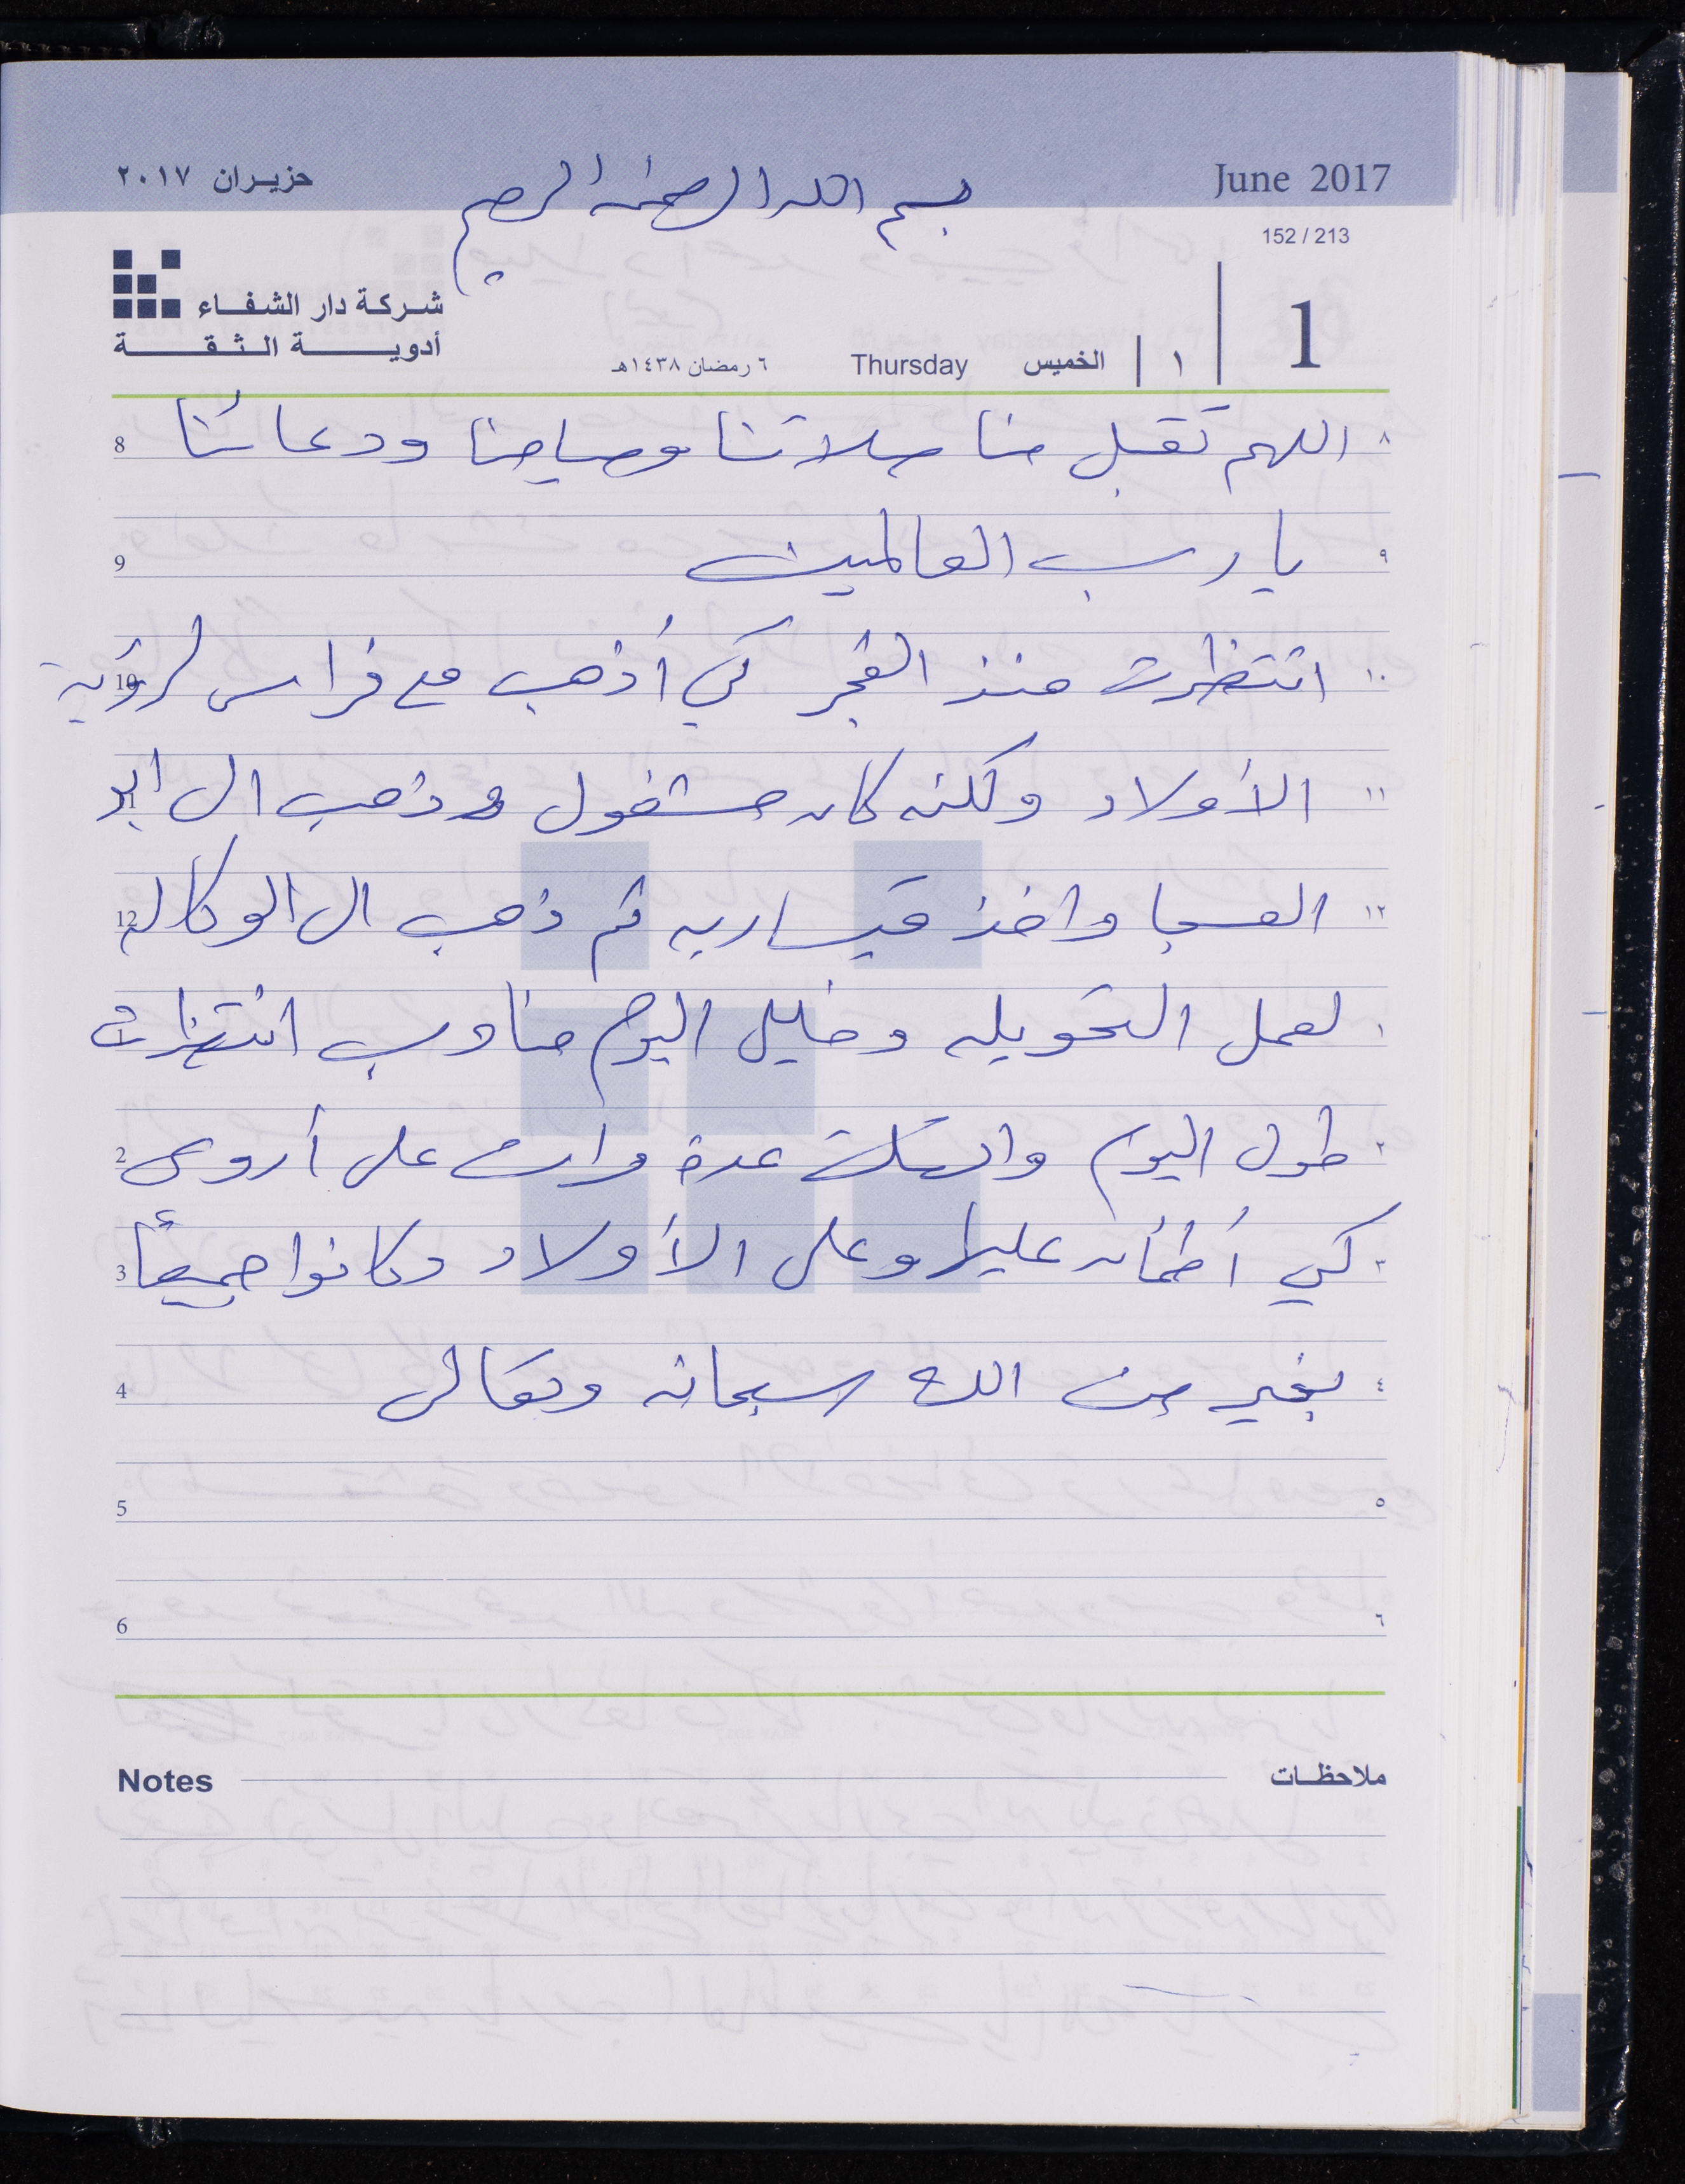 حزيـران ٢٠١٧
June 2017
بسم الله الرحمن الرحيم
152 / 213
شركة دار الشفـاء
أدويــة الثـقــة
٦ رمضان ١٤٣٨هـ
Thursday
الخميس
١
1
8 اللهم تقبل منا صلاتنا وصيامنا ودعائنا ٨
9 يا رب العالمين ٩
10 انتظرت منذ الفجر كي أذهب مع فراس لرؤية ١٠
الأولاد ولكنه كان مشغول وذهب الى ابو ١١
12 العسجا واخذ قيساريه ثم ذهب الى الوكاله ١٢
لعمل التحويله وخليل اليوم مناوب انتظرت ١
2 طول اليوم واتصلت عدة مرات على أروى ٢
3 كي أطمأن عليها وعلى الأولاد وكانوا جميعاً ٣
4 بخير من الله سبحانه وتعالى ٤
5 ٥
6 ٦
Notes
ملاحظـات